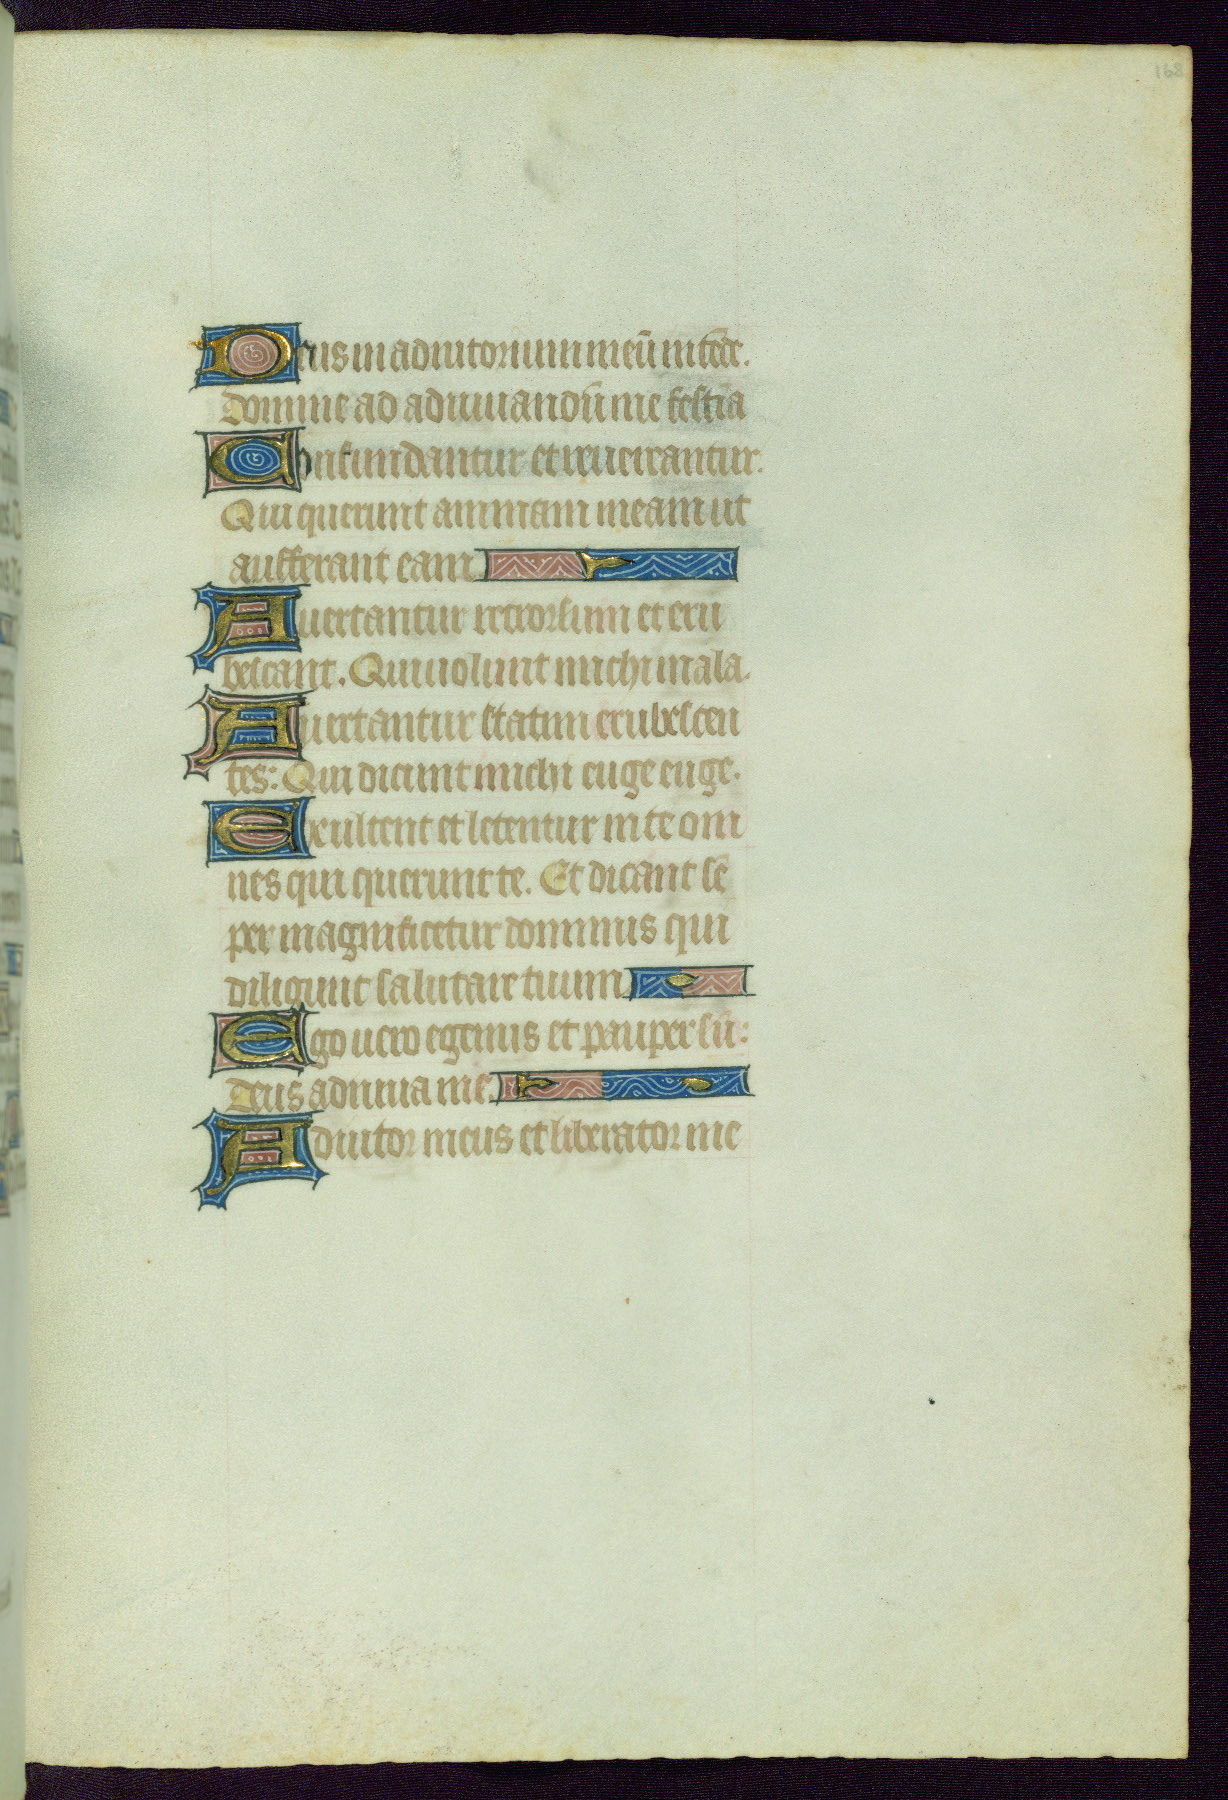 168
Deus in adiutorium meū intēde.
Domine ad adiuuandū me festīa
Confundantur et reuereantur.
Qui querunt animam meam ut
aufferant eam.
Auertantur retrorsum et eru
bescant. Qui uolunt michi mala.
Auertantur statim erubescen
tes: Qui dicunt michi euge euge.
Exultent et letentur in te om
nes qui querunt te. Et dicant sē
per magnificetur dominus qui
diligunt salutare tuum.
Ego uero egenus et pauper sū:
deus adiuua me.
Adiutor meus et liberator me